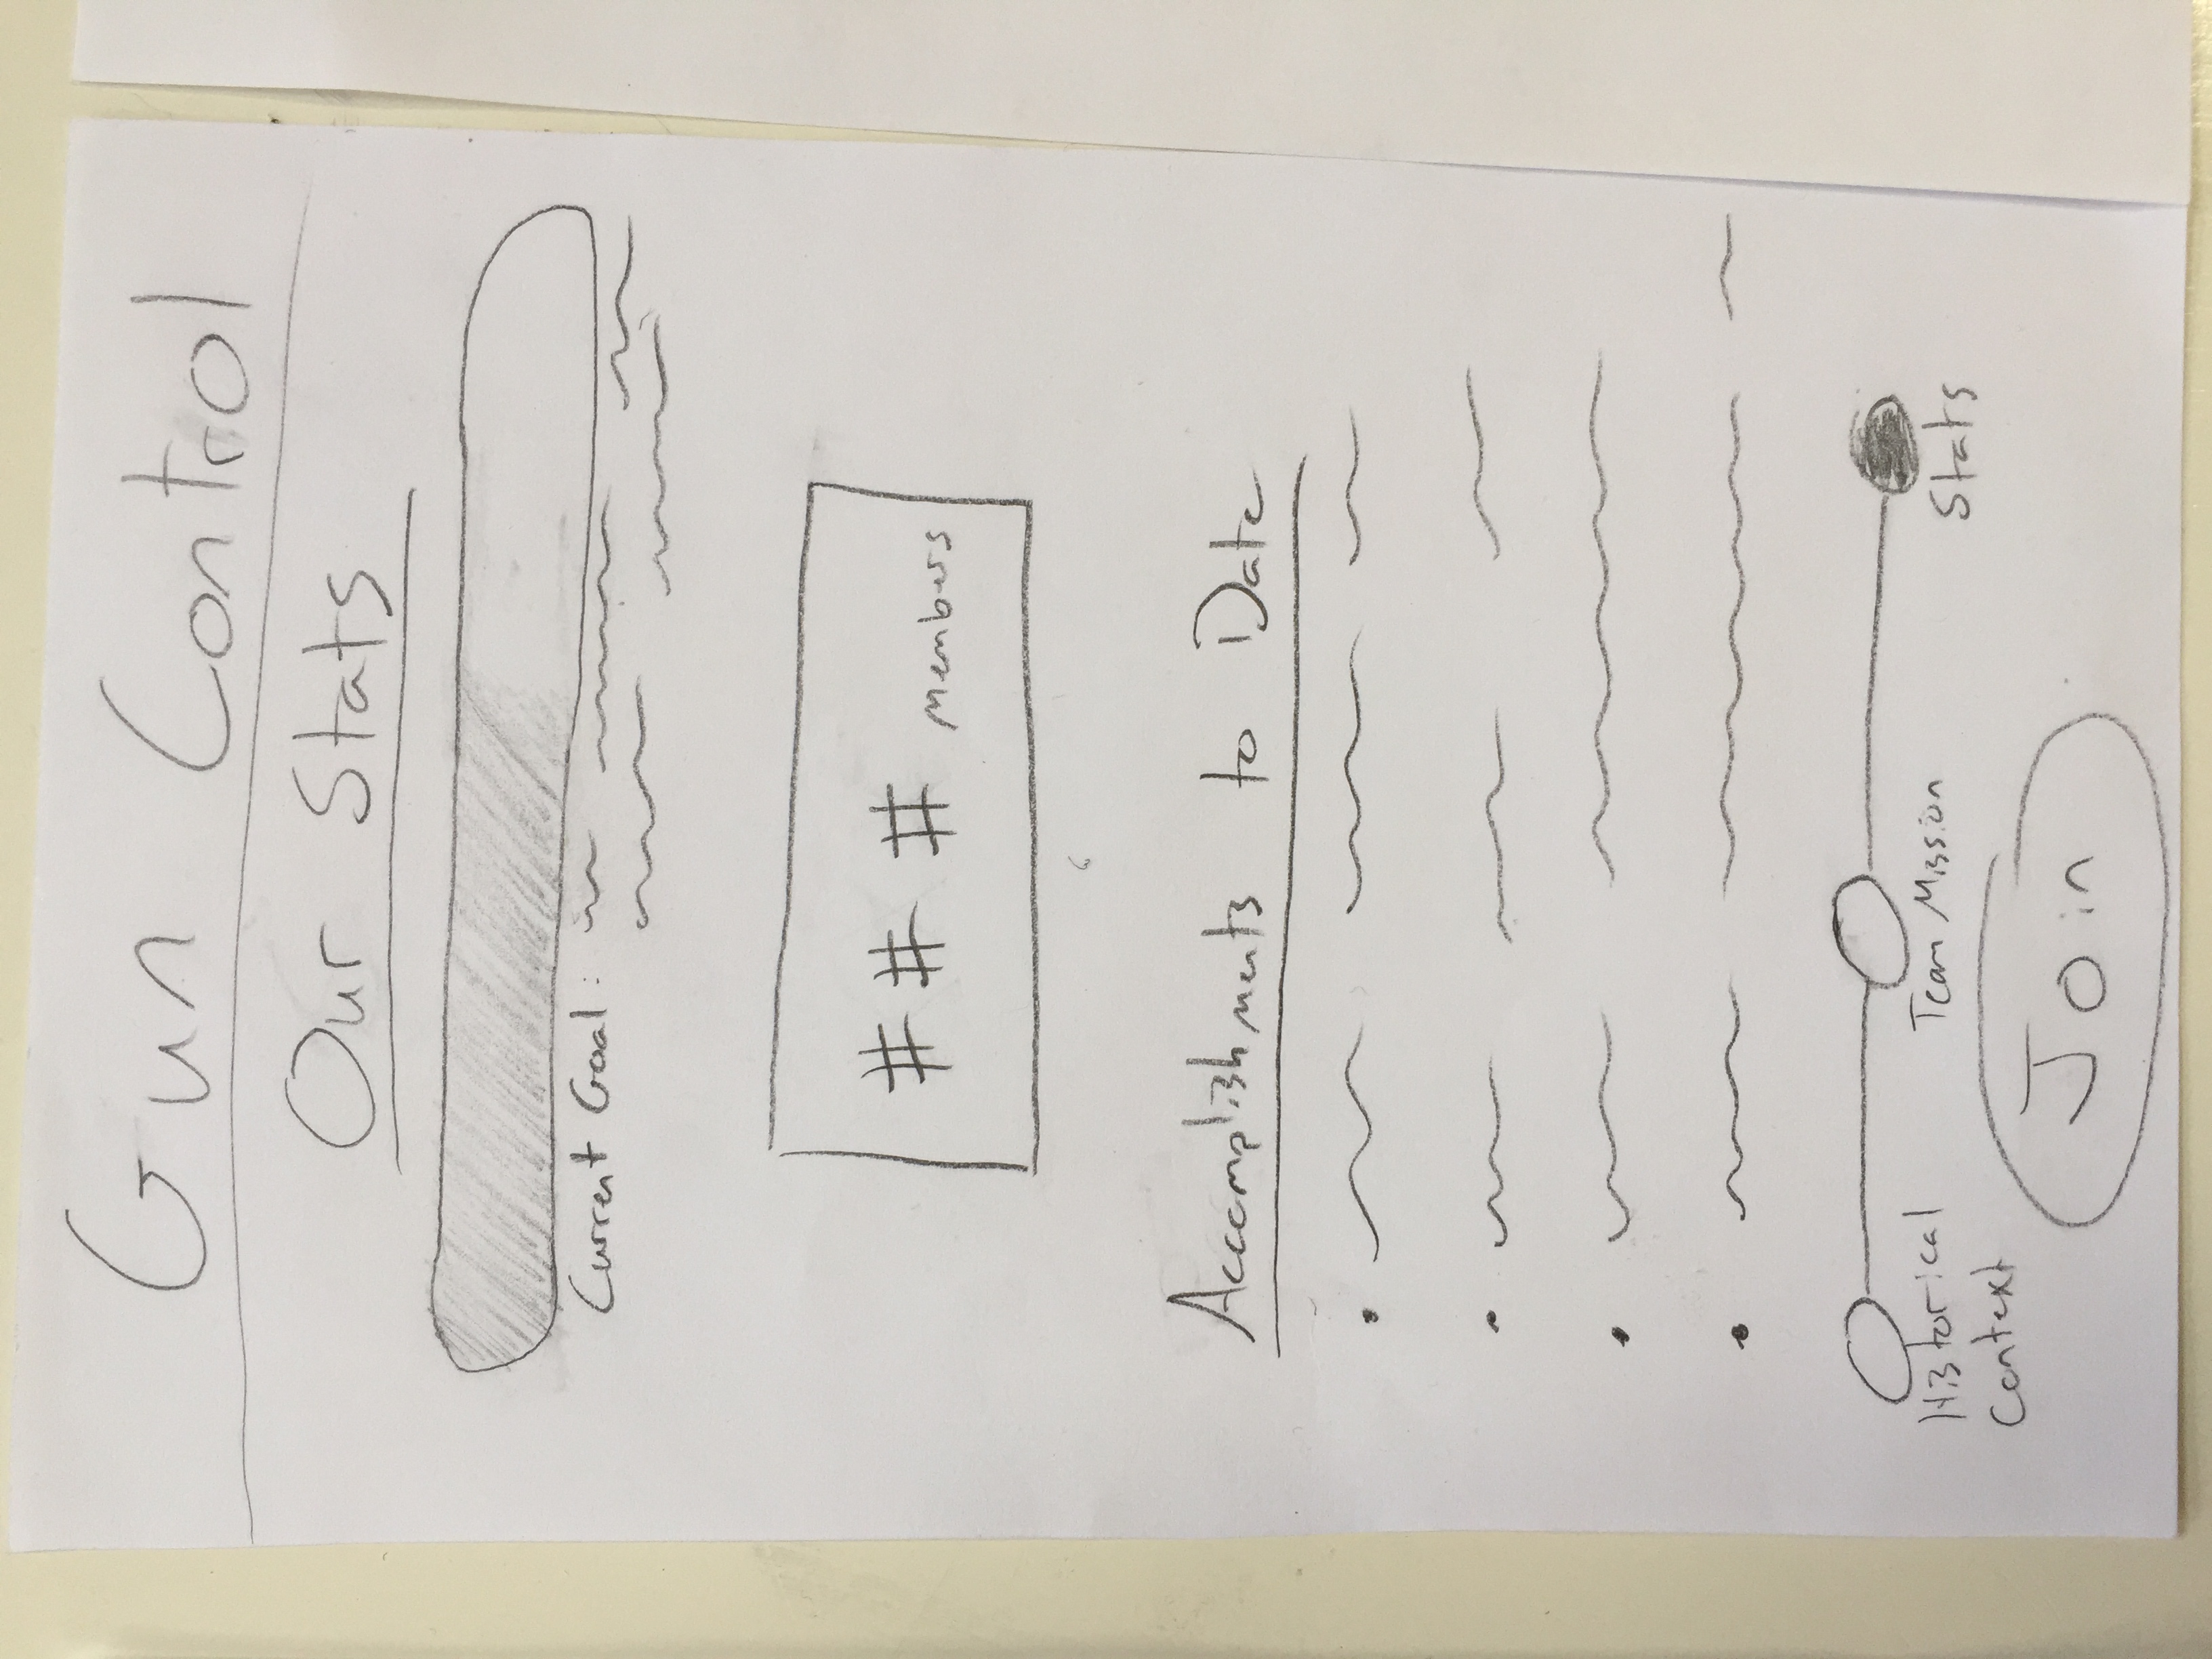 Gun Control
Our Stats
Current Goal:
# # # members
Accomplishments to Date
Historical Team Mission Stats
Context
Join